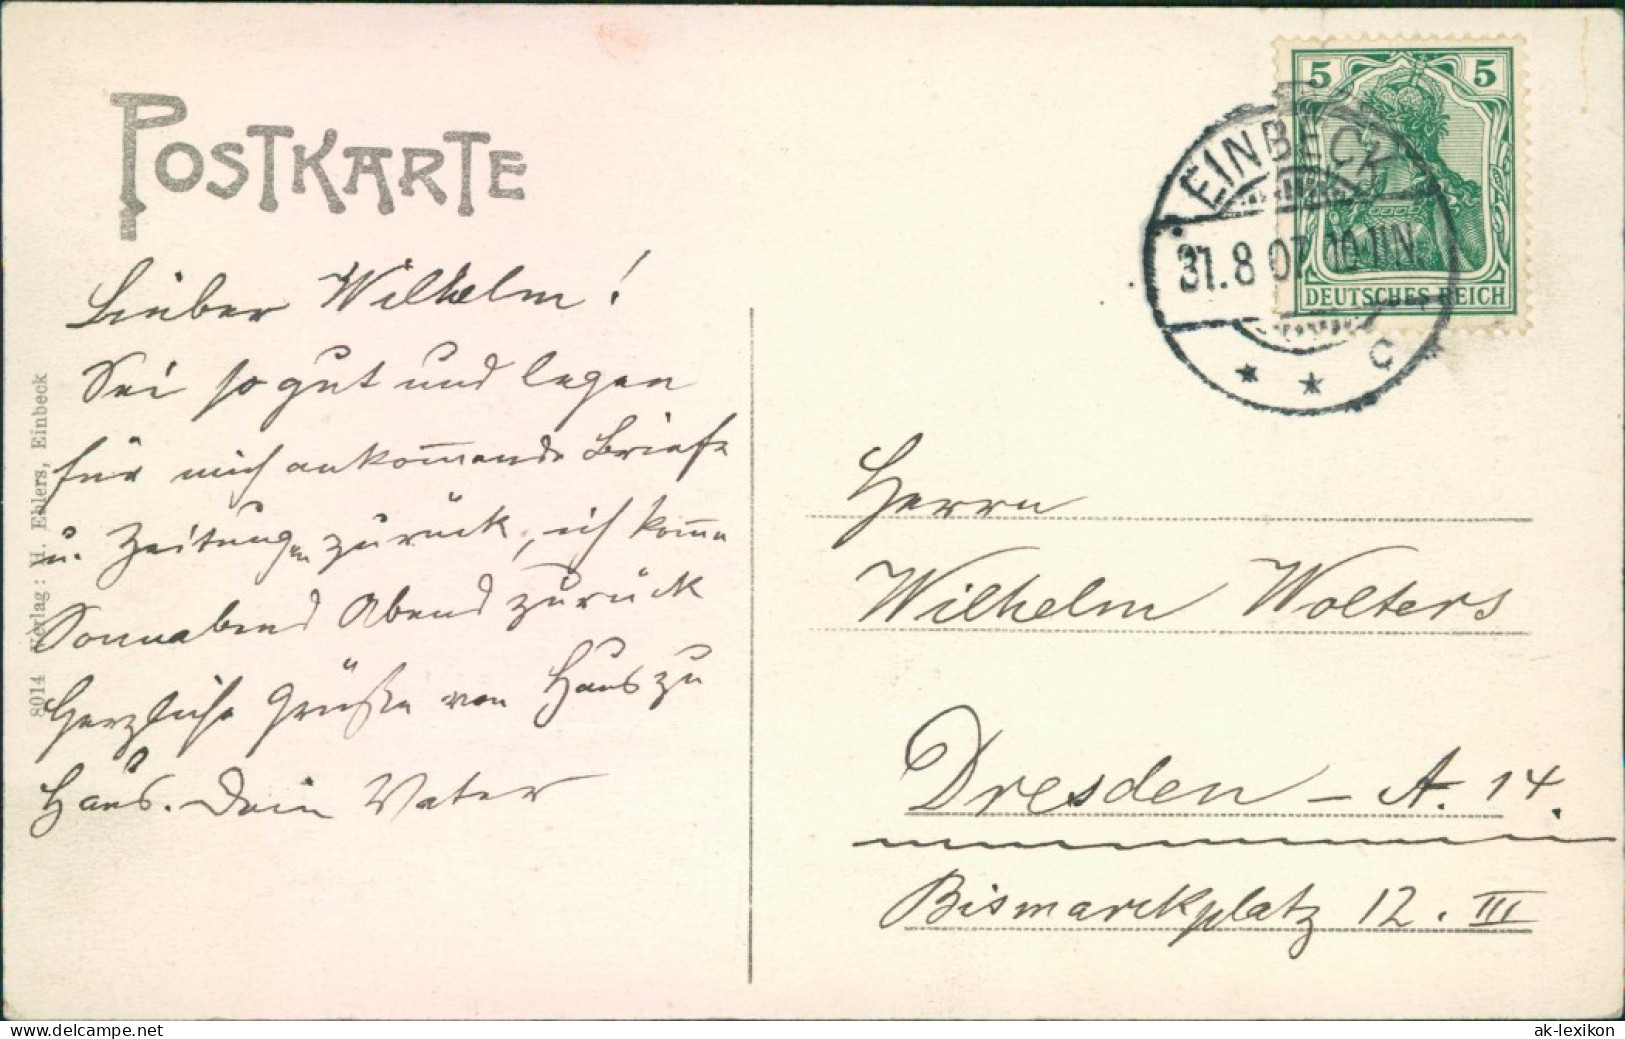 POSTKARTE
Lieber Wilhelm!
Sei so gut und legen
für mich ankom̅ende Briefe
u. Zeitungen zurück, ich kom̅e
Sonnabend Abend zurück
Herzliche Grüße von Haus zu
Haus. Dein Vater
8014 Verlag: H. Ehlers, Einbeck
EINBECK
31.8 07 10-11N.
* * C
5 5
DEUTSCHES REICH
Herrn
Wilhelm Wolters
Dresden – A. 14.
Bismarckplatz 12. III
www.delcampe.net
ak-lexikon